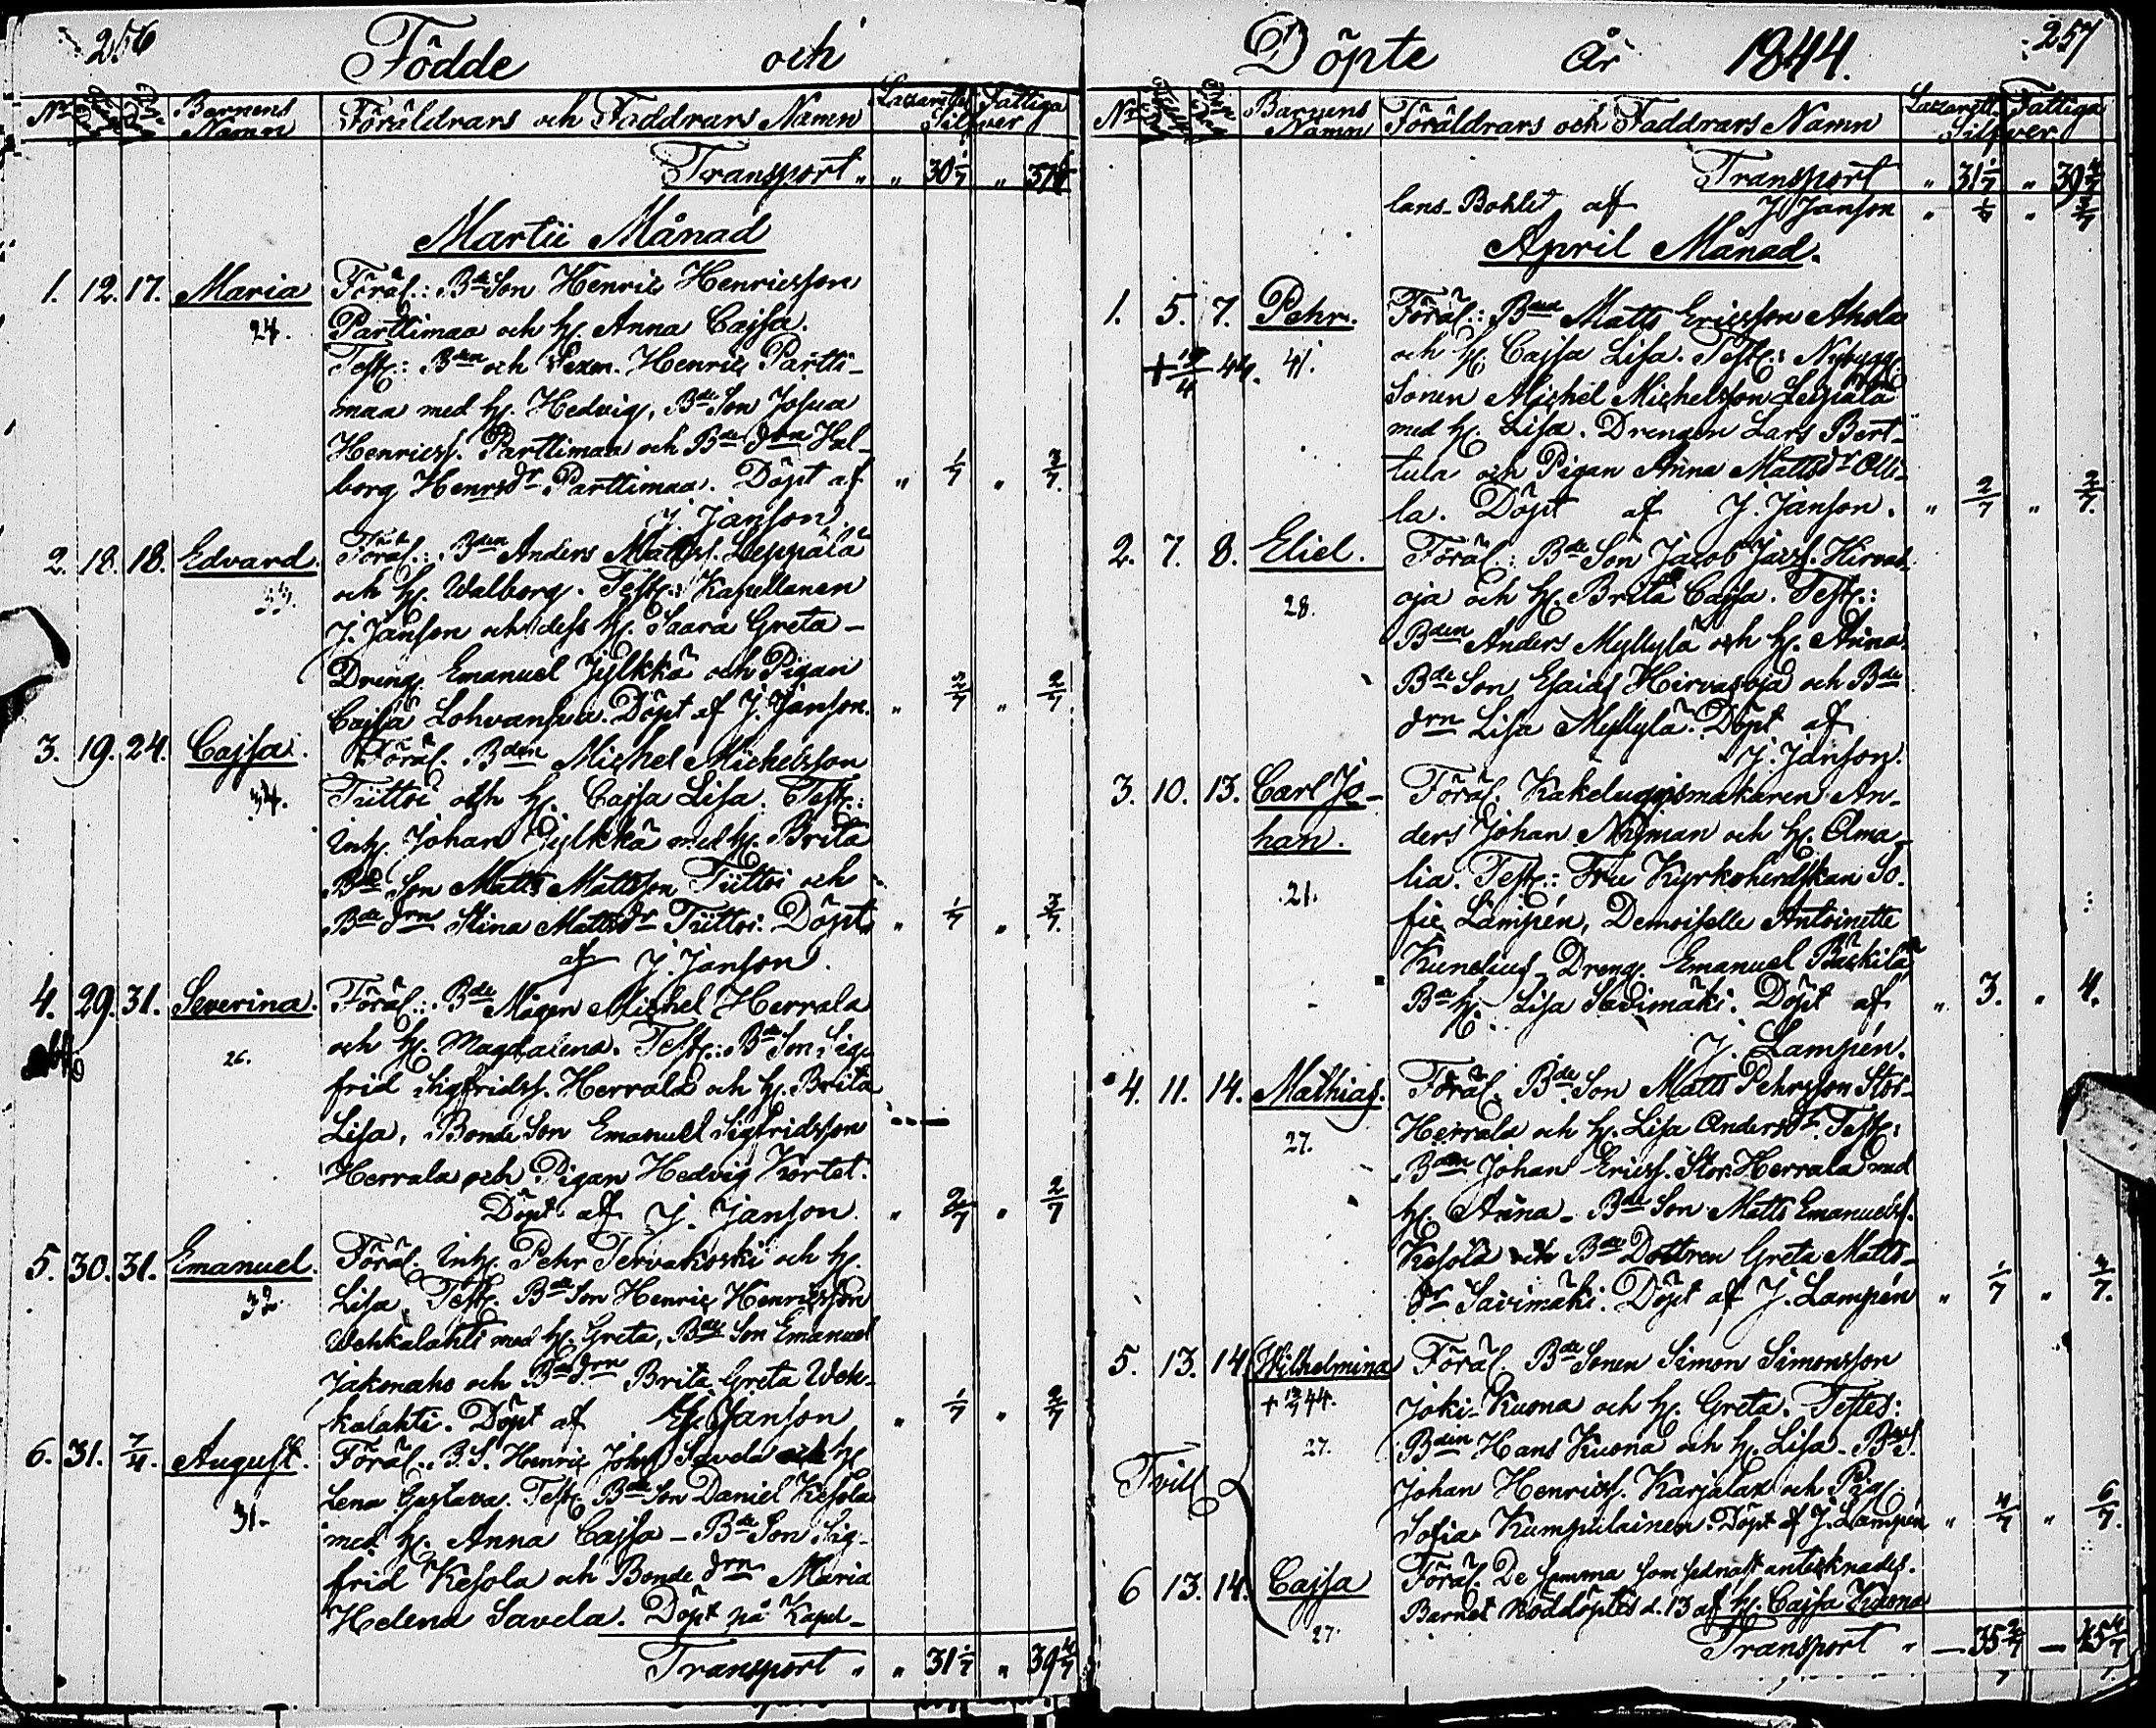 256
Födde och
Nr Barnens Namn Föräldrars och Faddrars Namn Lazaretts Fattiga Silfver
Transport " " 30 1/7 "
Martii Månad
1. 12. 17. Maria Föräl.: Bde Son Henric Henricsson
24. Parttimaa och H. Anna Cajsa.
Test.: Bden och Sexm. Henric Partti-
maa med H. Hedvig, Bde Son Josua
Henricss. Parttimaa och Bde drn Val-
borg Henrsdr Parttimaa. Döpt af " 1/7 " 3/7.
J. Janson.
2. 18. 18. Edvard. Föräl.: Bden Anders Mattss. Leppälä
33. och H. Walborg. Test.: Kapellanen
J. Janson och dess H. Saara Greta -
Dreng. Emanuel Jylkkä och Pigan
Cajsa Lohvansuu. Döpt af J. Janson. " 2/7 " 2/7
3. 19. 24. Cajsa. Föräl. Bden Michel Michelsson
34. Tiittoi och H. Cajsa Lisa. Test.:
Inh. Johan Jylkkä med H. Brita
Bde Son Matts Mattsson Tiittoi och
Bde drn Stina Mattsdr Tiittoi. Döpt " 1/7 " 3/7.
af J. Janson.
4. 29. 31. Severina. Föräl.: Bde Mågen Michel Herrala
26. och H. Magdalena. Test.: Bde Son Sig-
frid Sigfridss. Herrala och H. Brita
Lisa, Bonde Son Emanuel Sigfridsson
Herrala och Pigan Hedvig Kortet.
Döpt af J. Janson. " 2/7 " 2/7
5. 30. 31. Emanuel. Föräl. Inh. Pehr Tervakoski och H.
32. Lisa. Test. Bde Son Henric Henricsson
Wehkalahti med H. Greta, Bde Son Emanuel
Jakonaho och Bde drn Brita Greta Weh-
kalahti. Döpt af J. Janson " 1/7 " 2/7
6. 31. 7/4. August. Föräl. B.S. Henric Johss. Savela och H.
Lena Gustava. Test. Bde Son Daniel Kesola
31. med H. Anna Cajsa - Bde Son Sig-
frid Kesola och Bonde drn Maria
Helena Savela. Döpt på Kapel-
Transport " " 31 1/7 " 39 4/7
257
Döpte År 1844.
Nr Barnens Namn Föräldrars och Faddrars Namn Lazarett. Fattiga Silfver
Transport " 31 1/7 " 39 4/7
lans-Bohlet af J Janson " 1/7 " 3/7
April Månad.
1. 5. 7. Pehr. Föräl.: Bden Matts Ericsson Ahola
+ 44. 41. och H. Cajsa Lisa. Test.: Nybygg.
Sonen Michel Michelsson Leppälä
med H. Lisa. Drengen Lars Bert-
tula och Pigan Anna Mattsdr Olli-
la. Döpt af J. Janson. " 2/7 " 2/7.
2. 7. 8. Eliel. Föräl.: Bde Son Jacob Jacss. Hirvas-
28. oja och H. Brita Cajsa. Test.:
Bden Anders Myllylä och H. Anna
Bde Son Esaias Hirvasoja och Bde
drn Lisa Myllylä. Döpt af
J. Janson.
3. 10. 13. Carl Jo- Föräl. Kakelugnsmakaren An-
han. ders Johan Nyman och H. Ama-
21. lia. Test.: Fru Kyrkoherdskan So-
fie Lampén, Demoiselle Antoinette
Kunelius - Dreng. Emanuel Päkkilä
Bde H. Lisa Savimäki. Döpt af " 3. " 4.
J. Lampén.
4. 11. 14. Mathias. Föräl. Bde Son Matts Pehrsson Stor-
27. Herrala och H. Lisa Andersdr. Test.:
Bden Johan Ericss. Stor-Herrala med
H. Anna - Bde Son Matts Emanuelss.
Kesola och Bde Dottren Greta Matts-
dr Savimäki. Döpt af J. Lampén " 1/7 " 4/7.
5. 13. 14. Wilhelmina Föräl. Bde Sonen Simon Simonsson
+ 44. Joki-Kuona och H. Greta. Testes:
27. Bden Hans Kuona och H. Lisa. Bde S.
Tvill. Johan Henricss. Karjalax och Pig.
Sofia Kumpulainen. Döpt af J. Lampén " 4/7 " 6/7.
6 13. 14. Cajsa Föräl. De samma som sednast antecknades.
27. Barnet nöddöptes d. 13 af H. Cajsa Kuona
Transport " - 35 2/7 - 45 4/7